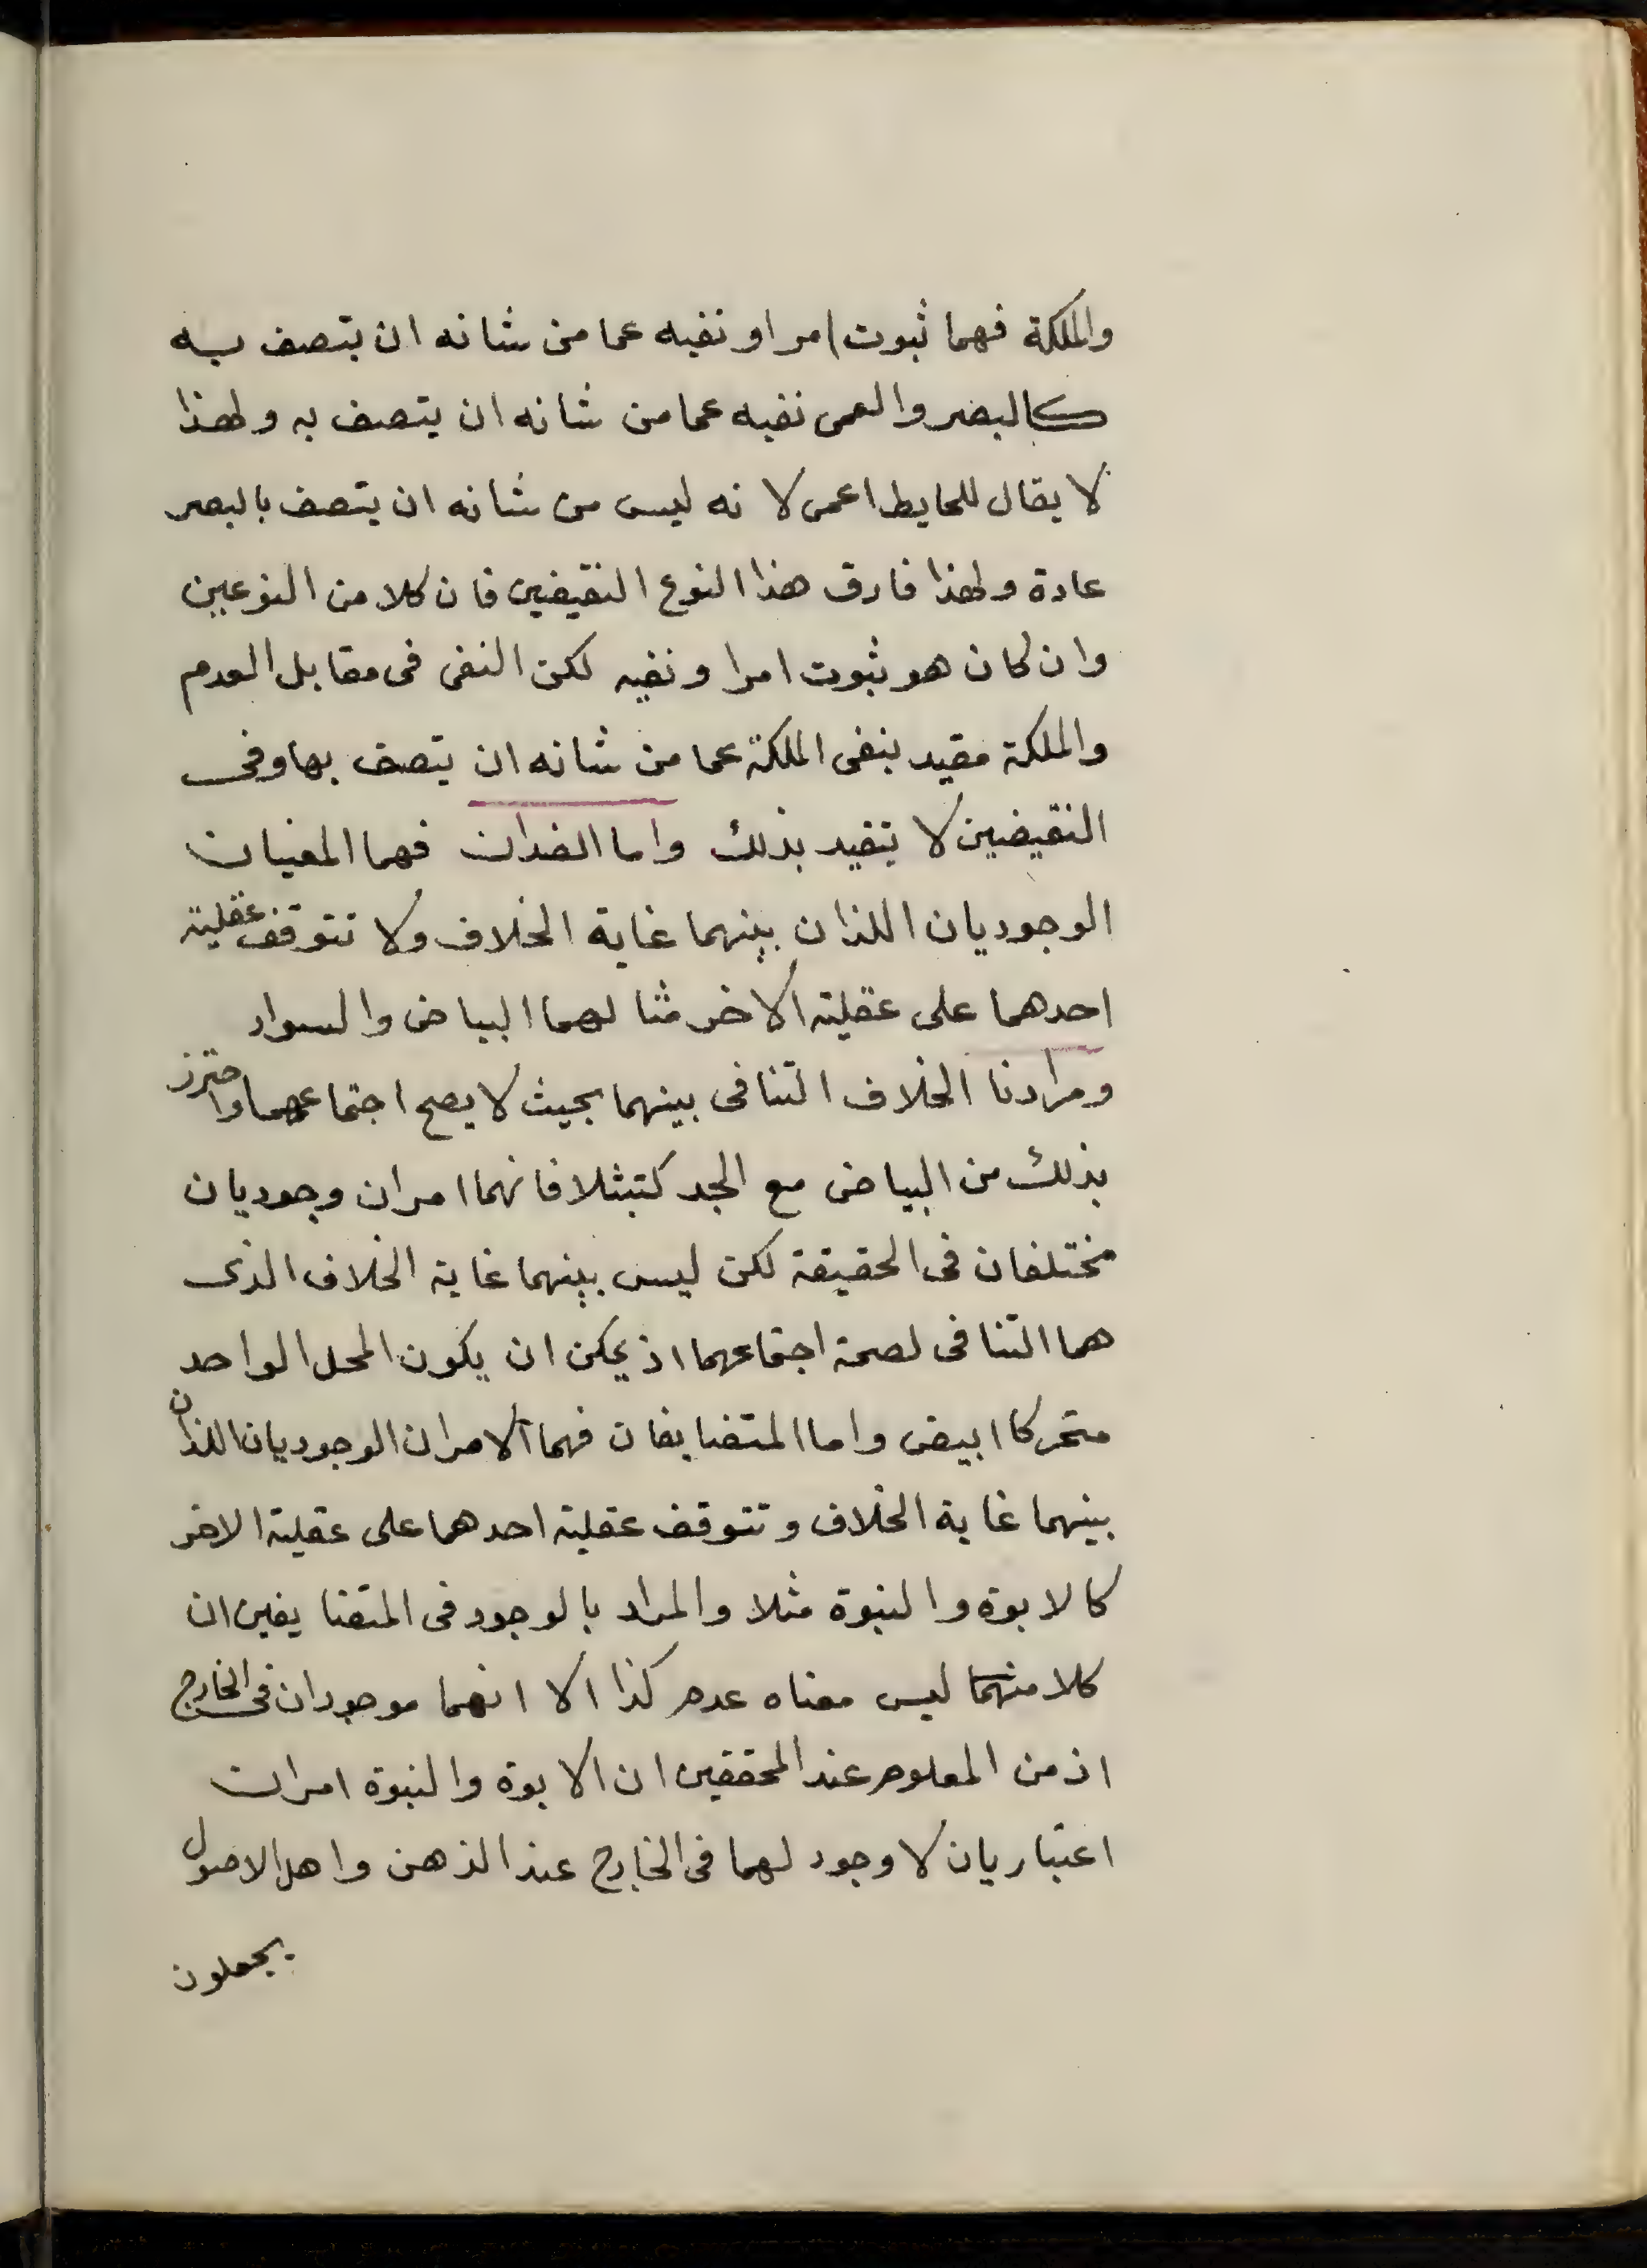 والملكة فهما ثبوت امر او نفيه عما من شانه ان يتصف به
كالبصر والعمى نفيه عما من شانه ان يتصف به ولهذا
لا يقال للحايط اعمى لا نه ليس من شانه ان يتصف بالبصر
عادة ولهذا فارق هذا النوع النقيضين فان كلا من النوعين
وان كان هو ثبوت امرا ونفيه لكن النفى فى مقابل العدم
والملكة مقيد بنفى الملكة عما من شانه ان يتصف بها وفى
النقيضين لا يتقيد بذلك واما الضدان فهما المعنيان
الوجوديان اللذان بينهما غاية الخلاف ولا تتوقف عقلية
احدهما على عقلية الاخر مثالهما البياض والسواد
ومرادنا الخلاف التنافى بينهما بحيث لا يصح اجتماعهما واحترز
بذلك من البياض مع الحركة مثلا فانهما امران وجوديان
مختلفان فى الحقيقة لكن ليس بينهما غاية الخلاف الذى
هما التنافى لصحة اجتماعهما اذ يمكن ان يكون المحل الواحد
متحركا ابيض واما المتضايفان فهما الامران الوجوديان اللذان
بينهما غاية الخلاف وتتوقف عقلية احدهما على عقلية الاخر
كالابوة والنبوة مثلا والمراد بالوجود فى المتضايفين ان
كلا منهما ليس معناه عدم كذا الا انهما موجودان فى الخارج
اذ من المعلوم عند المحققين ان الابوة والنبوة امران
اعتباريان لا وجود لهما فى الخارج عند الذهن واهل الاصول
يجعلون